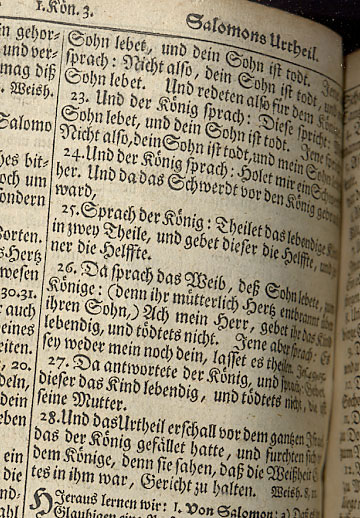 1. Kön. 3.
Salomons Urtheil.
Sohn lebet, und dein Sohn ist todt. Jene
sprach: Nicht also, dein Sohn ist todt, und
Sohn lebet. Und redeten also für dem König
23. Und der König sprach: Diese spricht:
Sohn lebet, und dein Sohn ist todt. Jene
Nicht also, dein Sohn ist todt, und mein Sohn
24. Und der König sprach: Holet mir ein
her. Und da das Schwerdt vor den König
ward,
25. Sprach der König: Theilet das lebendige
in zwey Theile, und gebet dieser die Helffte, und
ner die Helffte.
26. Da sprach das Weib, deß Sohn lebete, zum
Könige: (denn ihr mütterlich Hertz entbrannt über
ihren Sohn,) Ach mein Herr, gebet ihr das Kind
lebendig, und tödtets nicht. Jene aber sprach: Es
sey weder mein noch dein, lasset es theilen.
27. Da antwortete der König, und sprach: Gebet
dieser das Kind lebendig, und tödtets nicht, die ist
seine Mutter.
28. Und das Urtheil erschall vor dem gantzen
das der König gefället hatte, und furchten sich
dem Könige, denn sie sahen, daß die Weißheit
tes in ihm war, Gericht zu halten. Weish. 8,
Hieraus lernen wir: 1. von Salomon: 2)
in gehor-
und ver-
mag diß
Weish.
Salomo
hes bit-
och um
sondern
Worten.
s Hertz
wesen
30. 31.
r auch
eines
eiten.
, 20.
deln,
dein
eben
ein
die
nd-
ahl